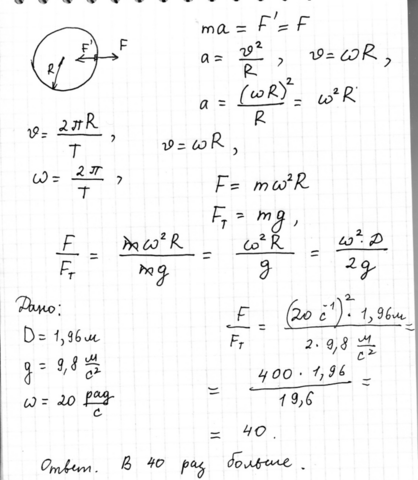 F' F
R
ma = F' = F
a = v²/R , v = ωR ,
a = (ωR)²/R = ω²R
v = 2πR/T , v = ωR ,
ω = 2π/T ,
F = mω²R
Fт = mg ,
F/Fт = mω²R/mg = ω²R/g = ω²·D/2g
Дано:
D = 1,96 м
g = 9,8 м/с²
ω = 20 рад/с
F/Fт = (20 c⁻¹)² · 1,96 м / 2 · 9,8 м/с² =
= 400 · 1,96 / 19,6 =
= 40.
Ответ. В 40 раз больше.